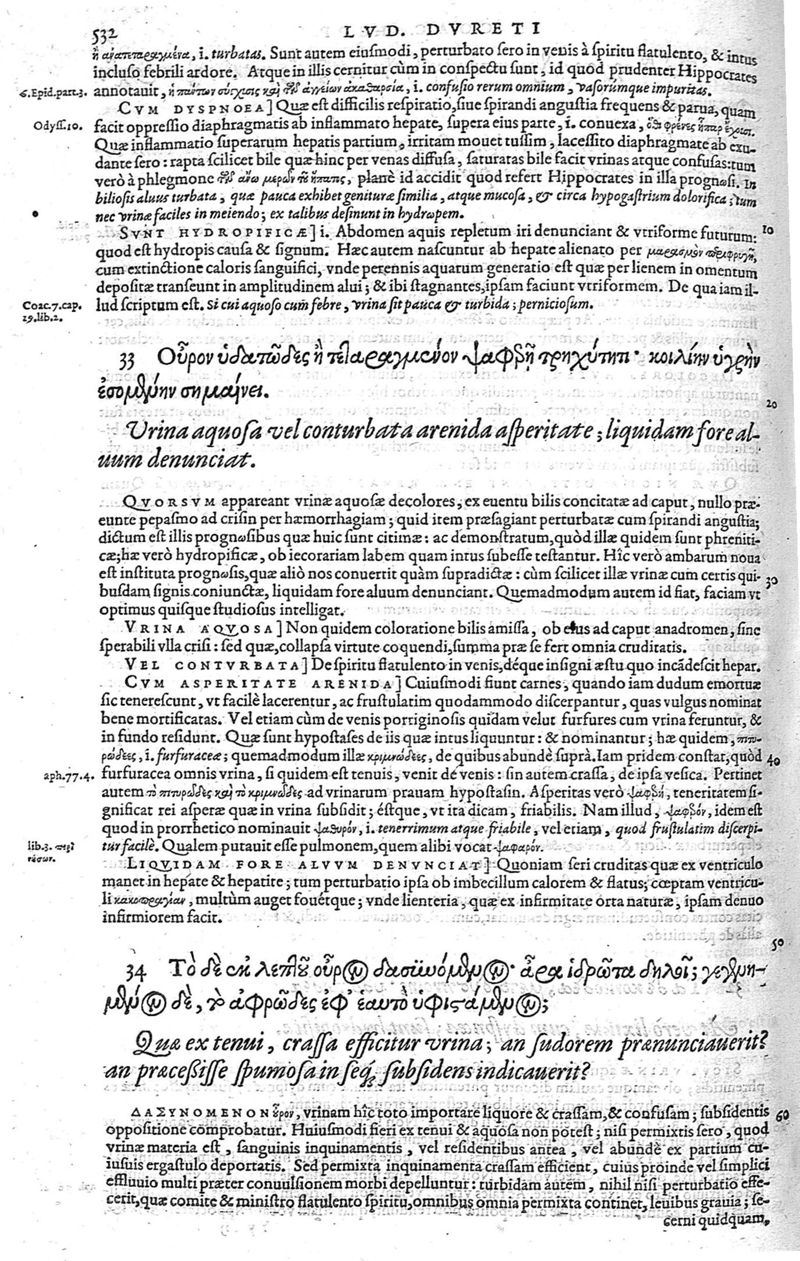 532 LVD. DVRETI
ἢ ἀναπεπαραγμένα, i. turbatas. Sunt autem eiusmodi, perturbato sero in venis à spiritu flatulento, & intus
incluso febrili ardore. Atque in illis cernitur cùm in conspectu sunt, id quod prudenter Hippocrates
6. Epid. part. 3. annotauit, ἡ πάντων σύγχυσις καὶ τῶν ἀγγείων ἀκαθαρσία, i. confusio rerum omnium, vasorumque impuritas.
CVM DYSPNOEA] Quæ est difficilis respiratio, siue spirandi angustia frequens & parua, quam
Odyss. 10. facit oppressio diaphragmatis ab inflammato hepate, supera eius parte, i. conuexa, ὅθι φρένες ἧπαρ ἔχουσι.
Quæ inflammatio superarum hepatis partium, irritam mouet tussim, lacessito diaphragmate ab exu-
dante sero: rapta scilicet bile quæ hinc per venas diffusa, saturatas bile facit vrinas atque confusas: tum
verò à phlegmone τῶν ἄνω μερῶν τοῦ ἥπατος, planè id accidit quod refert Hippocrates in illa prognωsi. In
biliosis aluus turbata, quæ pauca exhibet genituræ similia, atque mucosa, & circa hypogastrium dolorifica; tum
nec vrinæ faciles in meiendo; ex talibus desinunt in hydrωpem.
SVNT HYDROPIFICÆ] i. Abdomen aquis repletum iri denunciant & vtriforme futurum: 10
quod est hydropis causa & signum. Hæc autem nascuntur ab hepate alienato per
cum extinctione caloris sanguifici, vnde perennis aquarum generatio est quæ per lienem in omentum
depositæ transeunt in amplitudinem alui; & ibi stagnantes, ipsam faciunt vtriformem. De qua iam il-
Coac. 7. cap. 19. lib. 2. lud scriptum est. Si cui aquoso cum febre, vrina sit pauca & turbida; perniciosum.
33 Οὖρον ὑδατῶδες ἢ τεταραγμένον ψαφρῇ τρηχύτητι· κοιλίην ὑγρὴν
ἐσομένην σημαίνει.
20
Vrina aquosa vel conturbata arenida asperitate; liquidam fore al-
uum denunciat.
QVORSVM appareant vrinæ aquosæ decolores, ex euentu bilis concitatæ ad caput, nullo præ-
eunte pepasmo ad crisin per hæmorrhagiam; quid item præsagiant perturbatæ cum spirandi angustia;
dictum est illis prognωsibus quæ huic sunt citimæ: ac demonstratum, quòd illæ quidem sunt phreniti-
cæ; hæ verò hydropificæ, ob iecorariam labem quam intus subesse testantur. Hîc verò ambarum noua
est instituta prognωsis, quæ aliò nos conuertit quàm supradictæ: cùm scilicet illæ vrinæ cum certis qui- 30
busdam signis coniunctæ, liquidam fore aluum denunciant. Quemadmodum autem id fiat, faciam vt
optimus quisque studiosus intelligat.
VRINA AQVOSA] Non quidem coloratione bilis amissa, ob eius ad caput anadromen, sine
sperabili vlla crisi: sed quæ, collapsa virtute coquendi, summa præ se fert omnia cruditatis.
VEL CONTVRBATA] De spiritu flatulento in venis, déque insigni æstu quo incādescit hepar.
CVM ASPERITATE ARENIDA] Cuiusmodi fiunt carnes, quando iam dudum emortuæ
sic tenerescunt, vt facilè lacerentur, ac frustulatim quodammodo discerpantur, quas vulgus nominat
bene mortificatas. Vel etiam cùm de venis porriginosis quidam velut furfures cum vrina feruntur, &
in fundo resident. Quæ sunt hypostases de iis quæ intus liquuntur: & nominantur; hæ quidem, πιτυ-
ρώδεες, i. furfuraceæ; quemadmodum illæ κριμνώδεες, de quibus abundè suprà. Iam pridem constat, quòd 40
aph. 77. 4. furfuracea omnis vrina, si quidem est tenuis, venit dé venis: sin autem crassa, de ipsa vesica. Pertinet
autem τὸ πιτυρῶδες καὶ τὸ κριμνῶδες ad vrinarum prauam hypostasin. Asperitas verò ψαφρὴ, teneritatem si-
gnificat rei asperæ quæ in vrina subsidit; éstque, vt ita dicam, friabilis. Nam illud, ψαφρὸν, idem est
quod in prorrhetico nominauit ψαθυρὸν, i. tenerrimum atque friabile, vel etiam, quod frustulatim discerpi-
lib. 3. περὶ νούσων. tur facilè. Qualem putauit esse pulmonem, quem alibi vocat ψαφαρόν.
LIQVIDAM FORE ALVVM DENVNCIAT] Quoniam seri cruditas quæ ex ventriculo
manet in hepate & hepatite; tum perturbatio ipsa ob imbecillum calorem & flatus; cœptam ventricu-
li κακοπραγίαν, multùm auget fouétque; vnde lienteria, quæ ex infirmitate orta naturæ, ipsam denuo
infirmiorem facit.
50
34 Τὸ δὲ ἐκ λεπτοῦ οὖρον δασυνόμενον· ἆρα ἱδρῶτα δηλοῖ; γεγενη-
μένον δὲ, τὸ ἀφρῶδες ἐφ' ἑαυτὸ ὑφιστάμενον;
Quæ ex tenui, crassa efficitur vrina; an sudorem prænunciauerit?
an præcessisse spumosa in seq; subsidens indicauerit?
ΔΑΣΥΝΟΜΕΝΟΝ οὖρον, vrinam hîc toto importare liquore & crassam, & confusam; subsidentis 60
oppositione comprobatur. Huiusmodi fieri ex tenui & aquosa non potest; nisi permixtis sero, quod
vrinæ materia est, sanguinis inquinamentis, vel residentibus antea, vel abunde ex partium cu-
iusuis ergastulo deportatis. Sed permixta inquinamenta crassam efficient, cuius proinde vel simplici
effluuio multi præter conuulsionem morbi depelluntur: turbidam autem, nihil nisi perturbatio effe-
cerit, quæ comite & ministro flatulento spiritu, omnibus omnia permixta continet, leuibus grauia; se-
cerni quidquam,